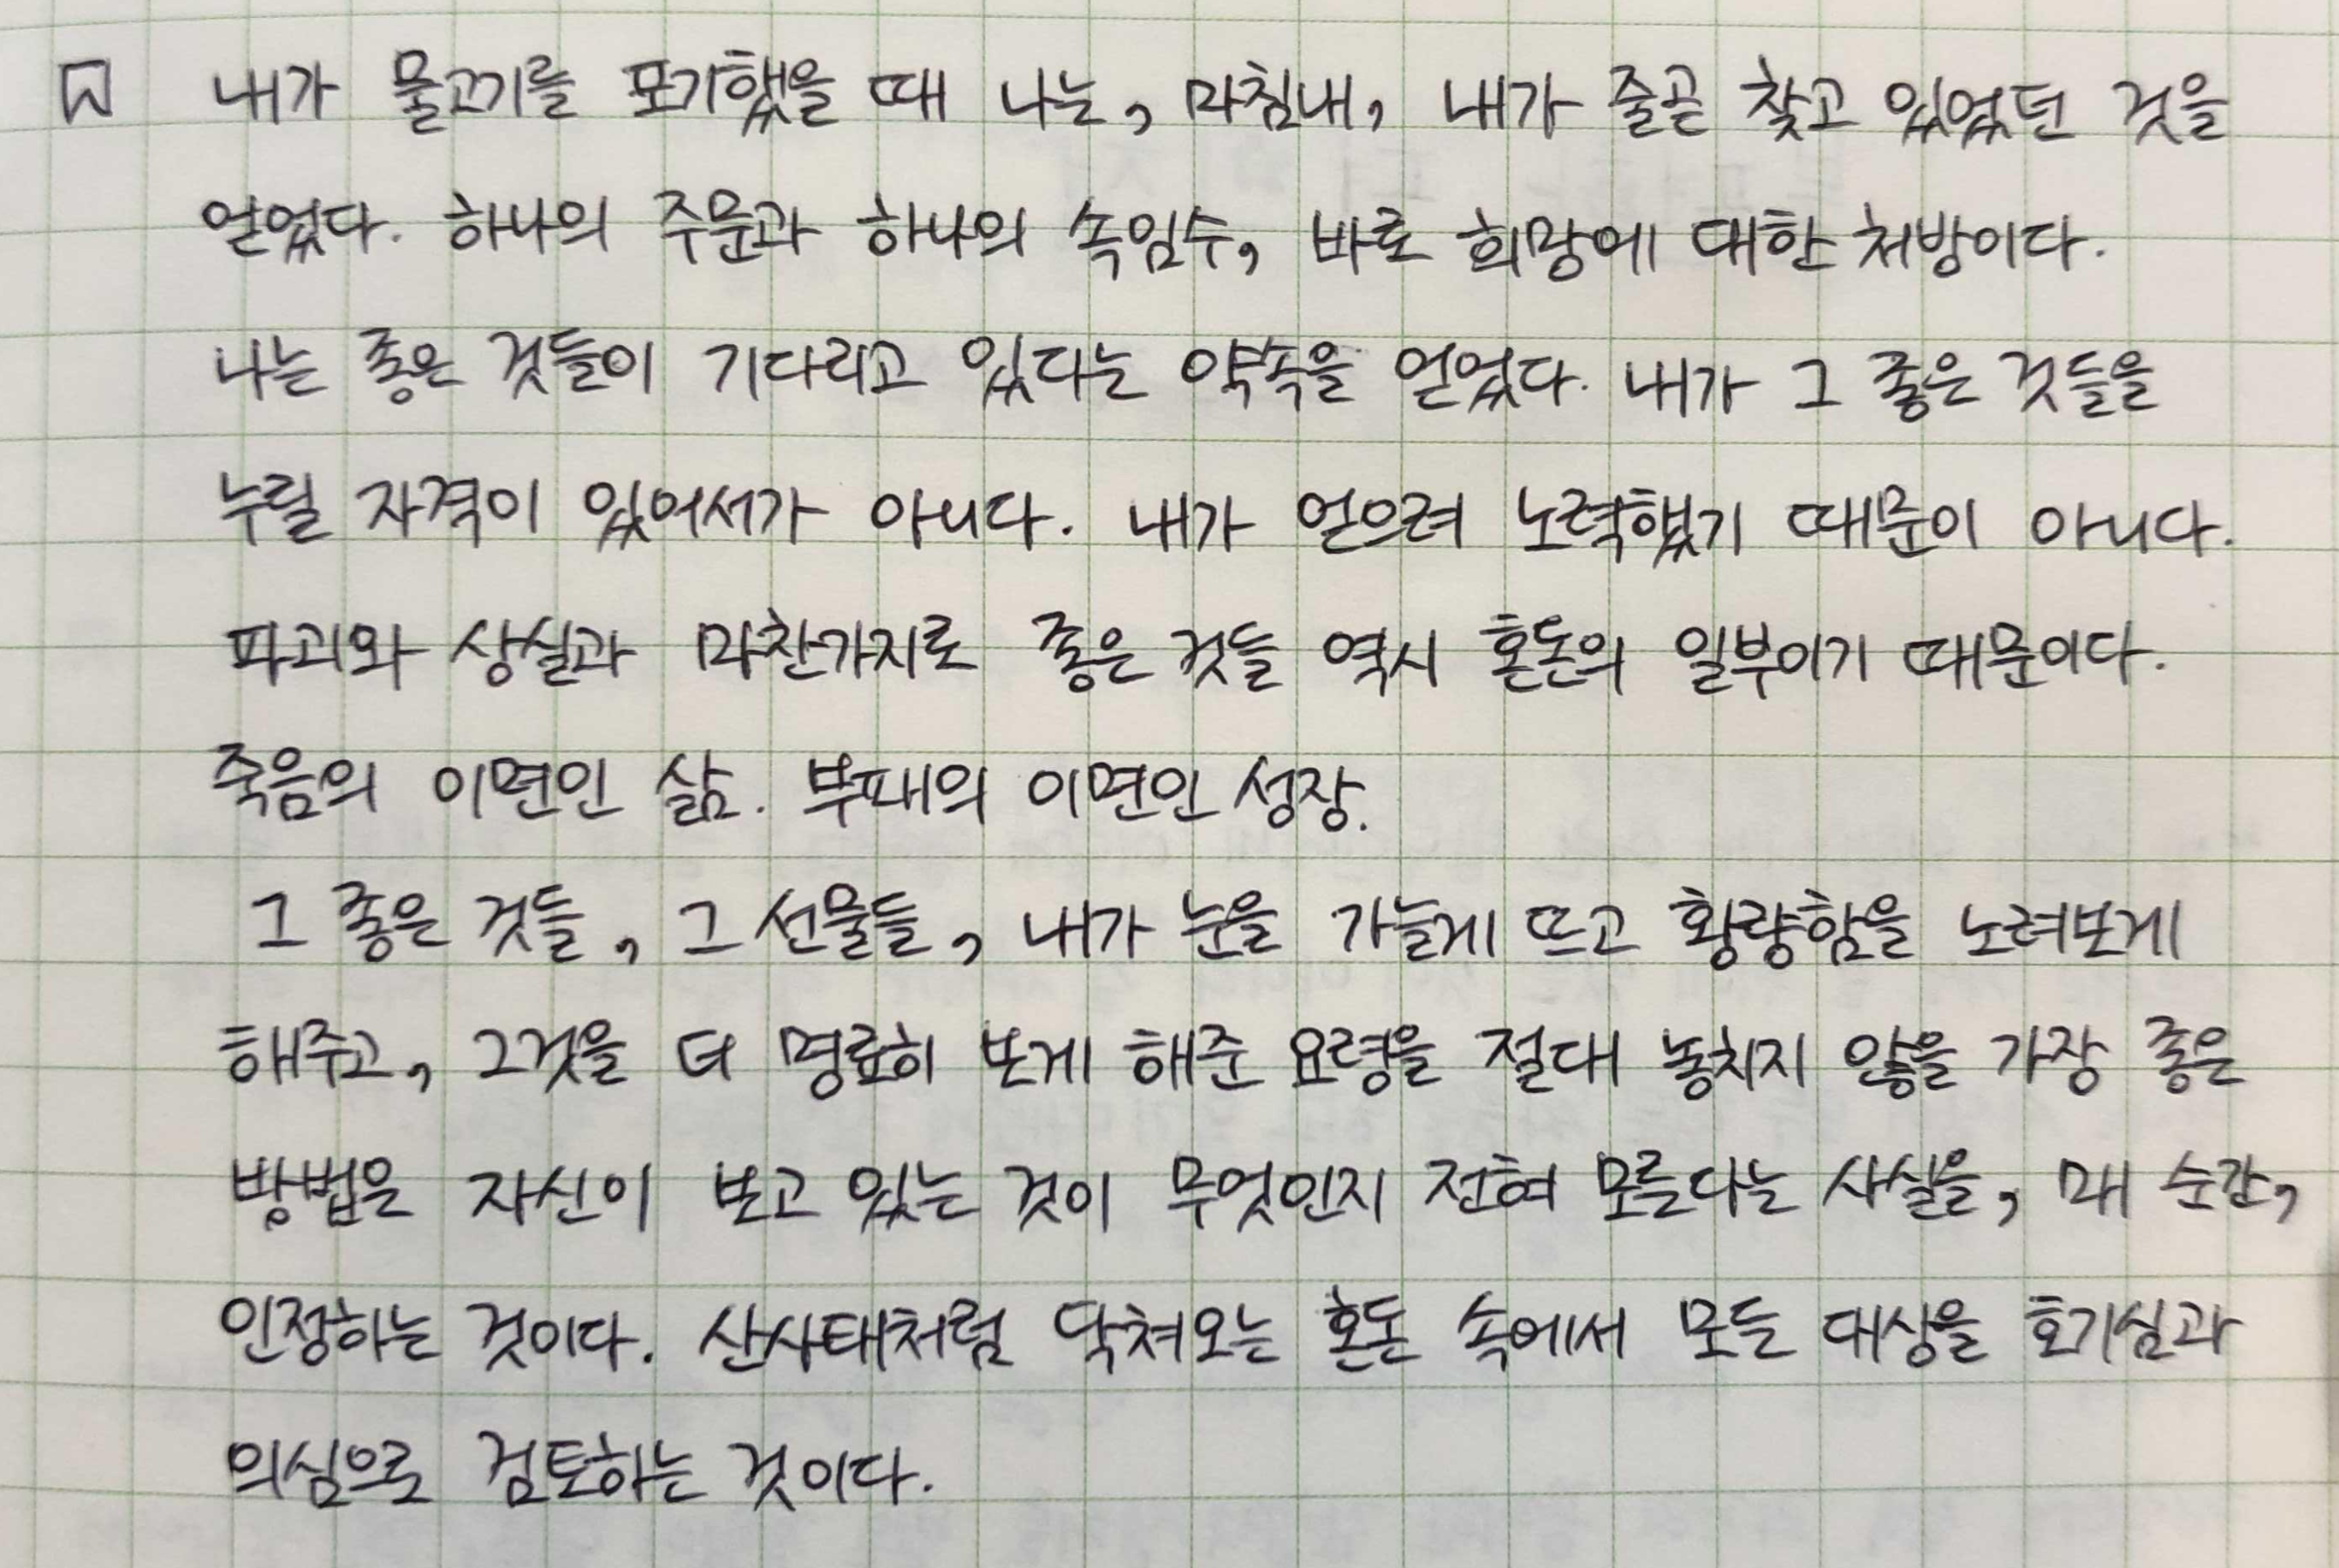 내가 물고기를 포기했을 때 나는, 마침내, 내가 줄곧 찾고 있었던 것을
얻었다. 하나의 주문과 하나의 속임수, 바로 희망에 대한 처방이다.
나는 좋은 것들이 기다리고 있다는 약속을 얻었다. 내가 그 좋은 것들을
누릴 자격이 있어서가 아니다. 내가 얻으려 노력했기 때문이 아니다.
파괴와 상실과 마찬가지로 좋은 것들 역시 혼돈의 일부이기 때문이다.
죽음의 이면인 삶. 부패의 이면인 성장.
그 좋은 것들, 그 선물들, 내가 눈을 가늘게 뜨고 황량함을 노려보게
해주고, 그것을 더 명료히 보게 해준 요령을 절대 놓치지 않을 가장 좋은
방법은 자신이 보고 있는 것이 무엇인지 전혀 모른다는 사실을, 매 순간,
인정하는 것이다. 산사태처럼 닥쳐오는 혼돈 속에서 모든 대상을 호기심과
의심으로 검토하는 것이다.